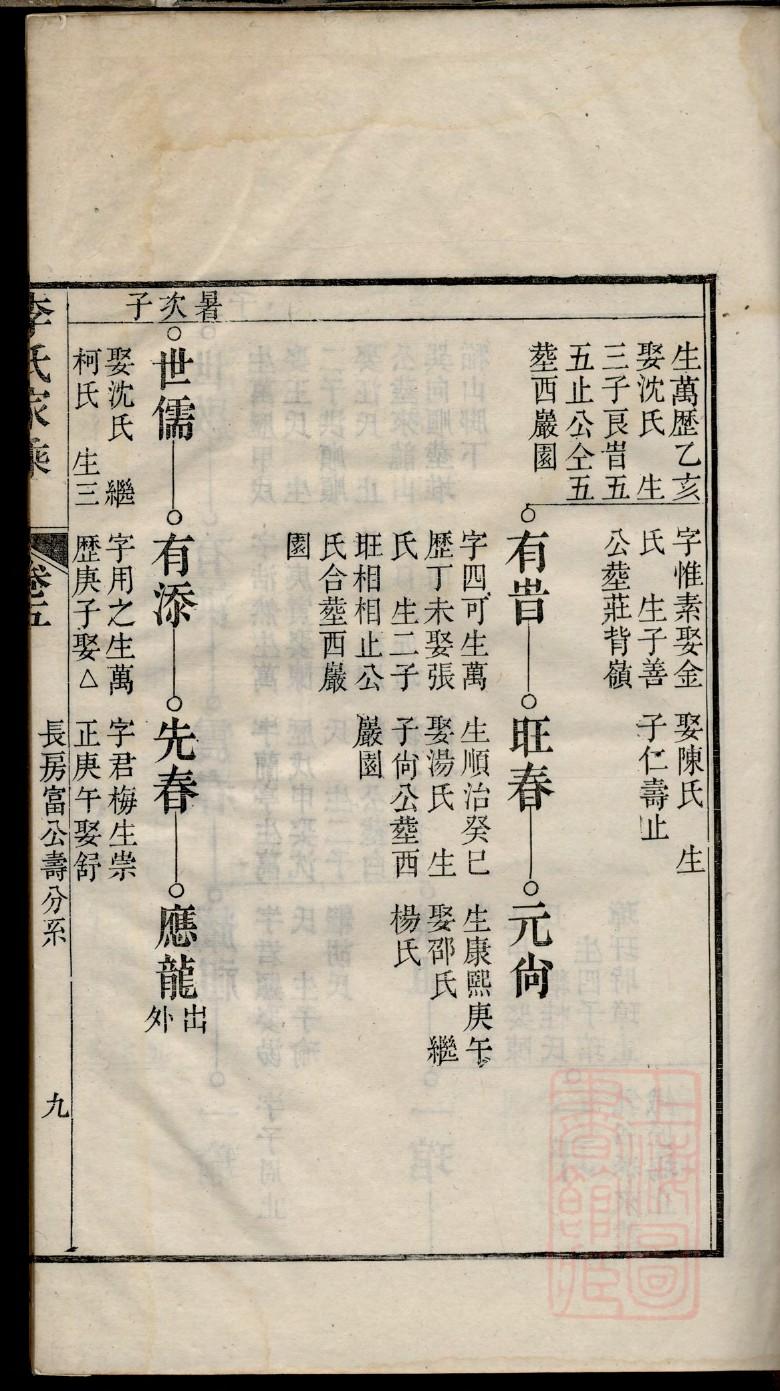 生萬歷乙亥
娶沈氏 生
三子良旹五
五止公仝五
塟西巖園
字惟素娶金
氏 生子善
公塟莊背嶺
娶陳氏 生
子仁壽止
有旹
字四可生萬
歷丁未娶張
氏 生二子
旺相相止公
氏合塟西巖
園
旺春
生順治癸巳
娶湯氏 生
子尙公塟西
巖園
元尙
生康熙庚午
娶邵氏 繼
楊氏
暑次子
世儒
娶沈氏 繼
柯氏 生三
有添
字用之生萬
歷庚子娶△
先春
字君梅生崇
正庚午娶舒
應龍
出外
李氏家乘
卷五
長房富公壽分系
九